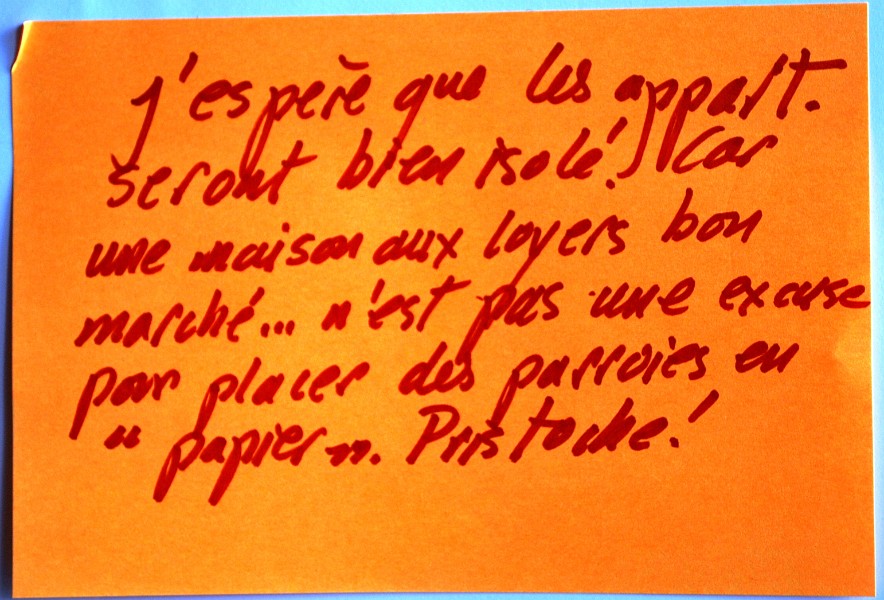 j'espère que les appart.
seront bien isolé! Car
une maison aux loyers bon
marché... n'est pas une excuse
pour placer des parroies en
" papier ". Pristoche!